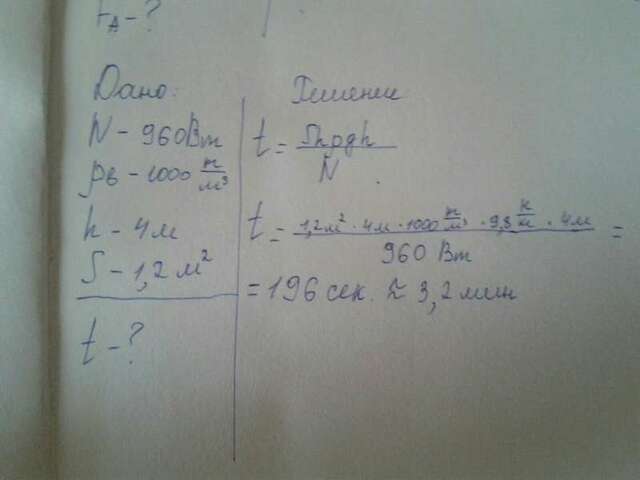 FА - ?
Дано:
N - 960Вт
ρв - 1000 н/м³
h - 4м
S - 1,2 м²
t - ?
Решение
t = Shρgh/N
t = 1,2м² · 4м · 1000 н/м³ · 9,8 н/м · 4м / 960 Вт =
= 196 сек. ≈ 3,2 мин